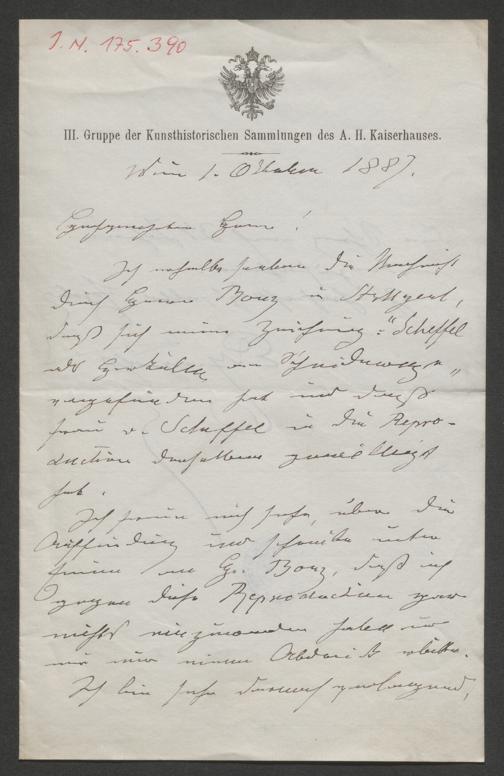 I. N. 175.390
III. Gruppe der Kunsthistorischen Sammlungen des A. H. Kaiserhauses.
Wien 1. Oktober 1887.
Hochgeehrter Herr!
Ich erhalte soeben die Nachricht
durch Herrn Bonz in Stuttgart,
daß sich meine Zeichnung: "Scheffel
als Herkules am Scheidewege"
vorgefunden hat und daß
Frau v. Scheffel in die Repro-
duction derselben gewilligt
hat.
Ich freue mich sehr, über die
Auffindung und schreibe unter
Einem an H. Bonz, daß ich
gegen diese Reproduction gar
nichts einzuwenden habe und
mir nur einen Abdruck erbitte.
Ich bin sehr darnach verlangend,